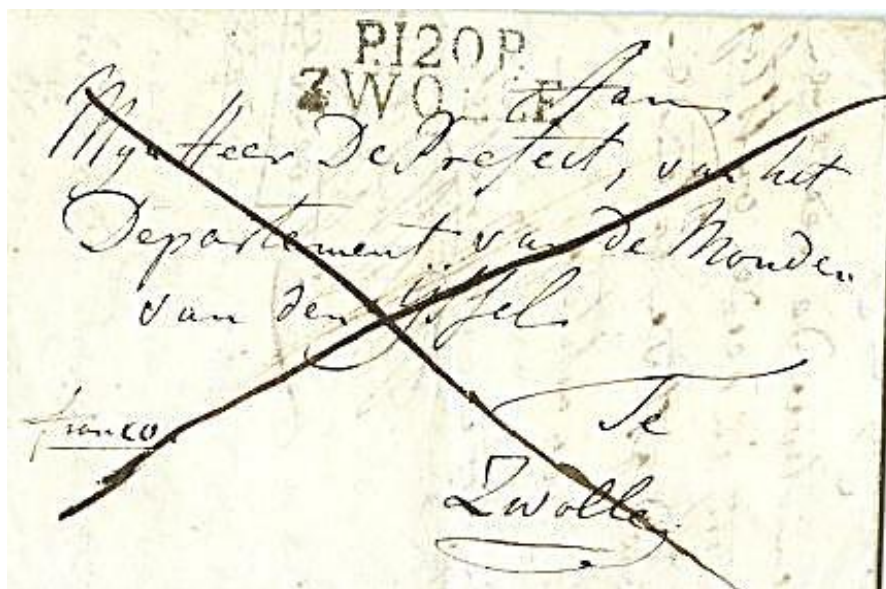 P.120.P.
ZWO
Aan
Myn Heer De Prefect, van het
Departement van de Monden
van den ijssel
franco
Te
Zwolle